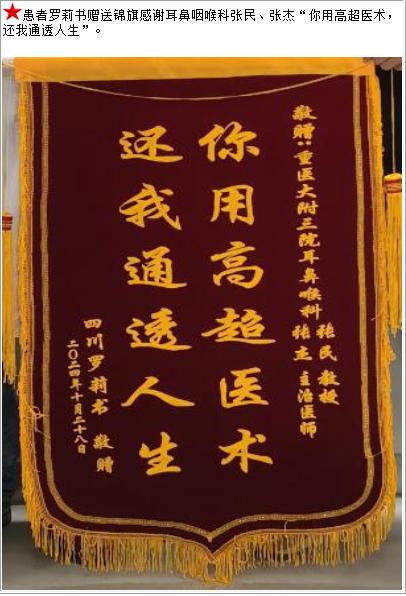 ★患者罗莉书赠送锦旗感谢耳鼻咽喉科张民、张杰“你用高超医术，
还我通透人生”。
敬赠：重医大附三院耳鼻喉科
张民 教授
张杰 主治医师
你用高超医术
还我通透人生
四川罗莉书 敬赠
二〇二四年十月二十八日